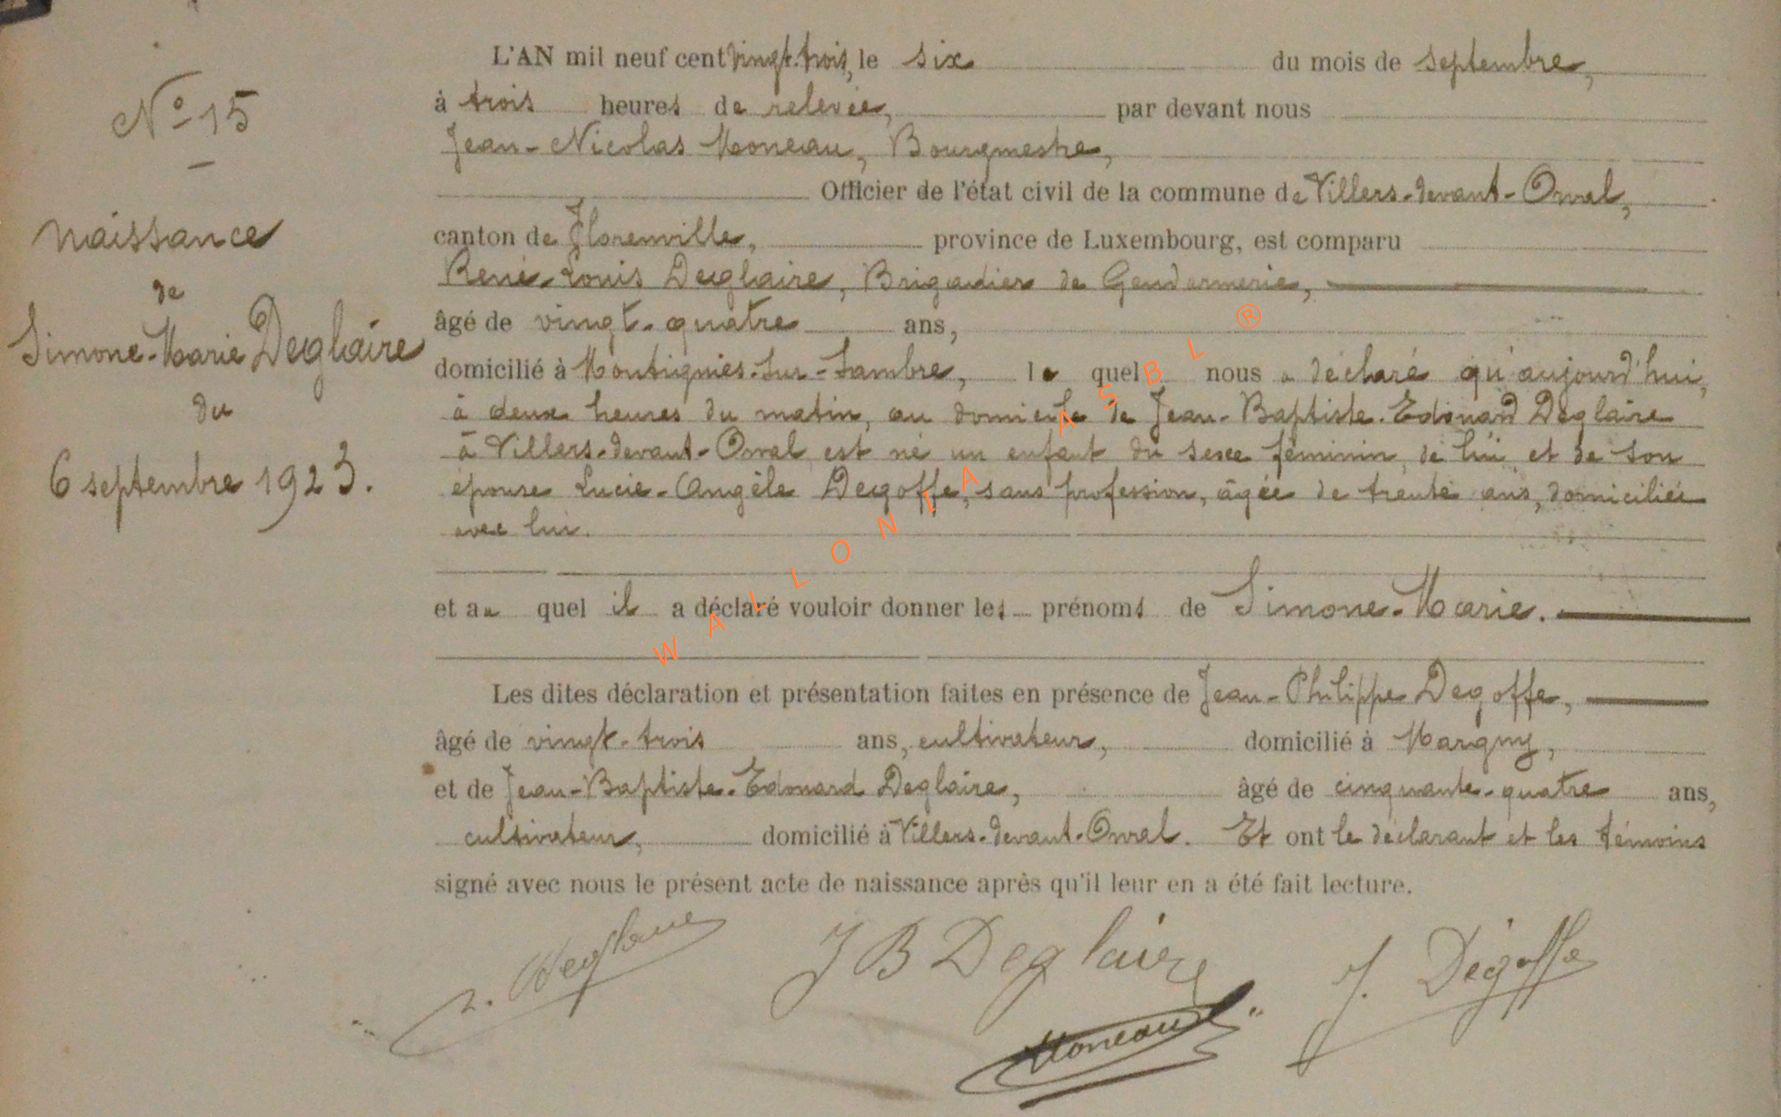 N° 15
naissance
de
Simone-Marie Deglaire
du
6 septembre 1923.
L'AN mil neuf cent vingt-trois, le six du mois de septembre,
à trois heures de relevée, par devant nous
Jean-Nicolas Moneau, Bourgmestre,
Officier de l'état civil de la commune de Villers-devant-Orval,
canton de Florenville, province de Luxembourg, est comparu
René-Louis Deglaire, Brigadier de Gendarmerie,
âgé de vingt-quatre ans,
domicilié à Montignies-sur-Sambre, le quel nous a déclaré qu'aujourd'hui,
à deux heures du matin, au domicile de Jean-Baptiste-Edouard Deglaire
à Villers-devant-Orval est né un enfant du sexe féminin, de lui et de son
épouse Lucie-Angèle Degoffe, sans profession, âgée de trente ans, domiciliée
avec lui.
et au quel il a déclaré vouloir donner les prénoms de Simone-Marie.
Les dites déclaration et présentation faites en présence de Jean-Philippe Degoffe,
âgé de vingt-trois ans, cultivateur, domicilié à Margny,
et de Jean-Baptiste-Edouard Deglaire, âgé de cinquante-quatre ans,
cultivateur, domicilié à Villers-devant-Orval. Et ont le déclarant et les témoins
signé avec nous le présent acte de naissance après qu'il leur en a été fait lecture.
Deglaire J B Deglaire J. Dégoffe
Moneau
WALLONIA ASBL ®